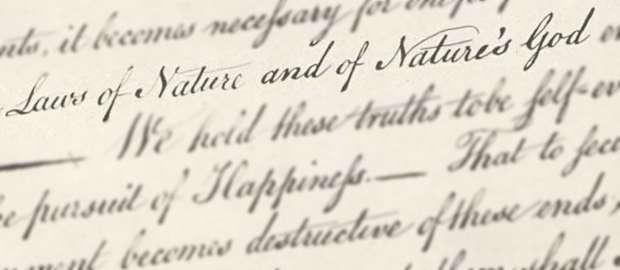 nts, it becomes neceſsary for one
Laws of Nature and of Nature's God en
We hold these truths to be ſelf-ev
e pursuit of Happineſs.— That to ſec
ment becomes destructive of these ends,
shall